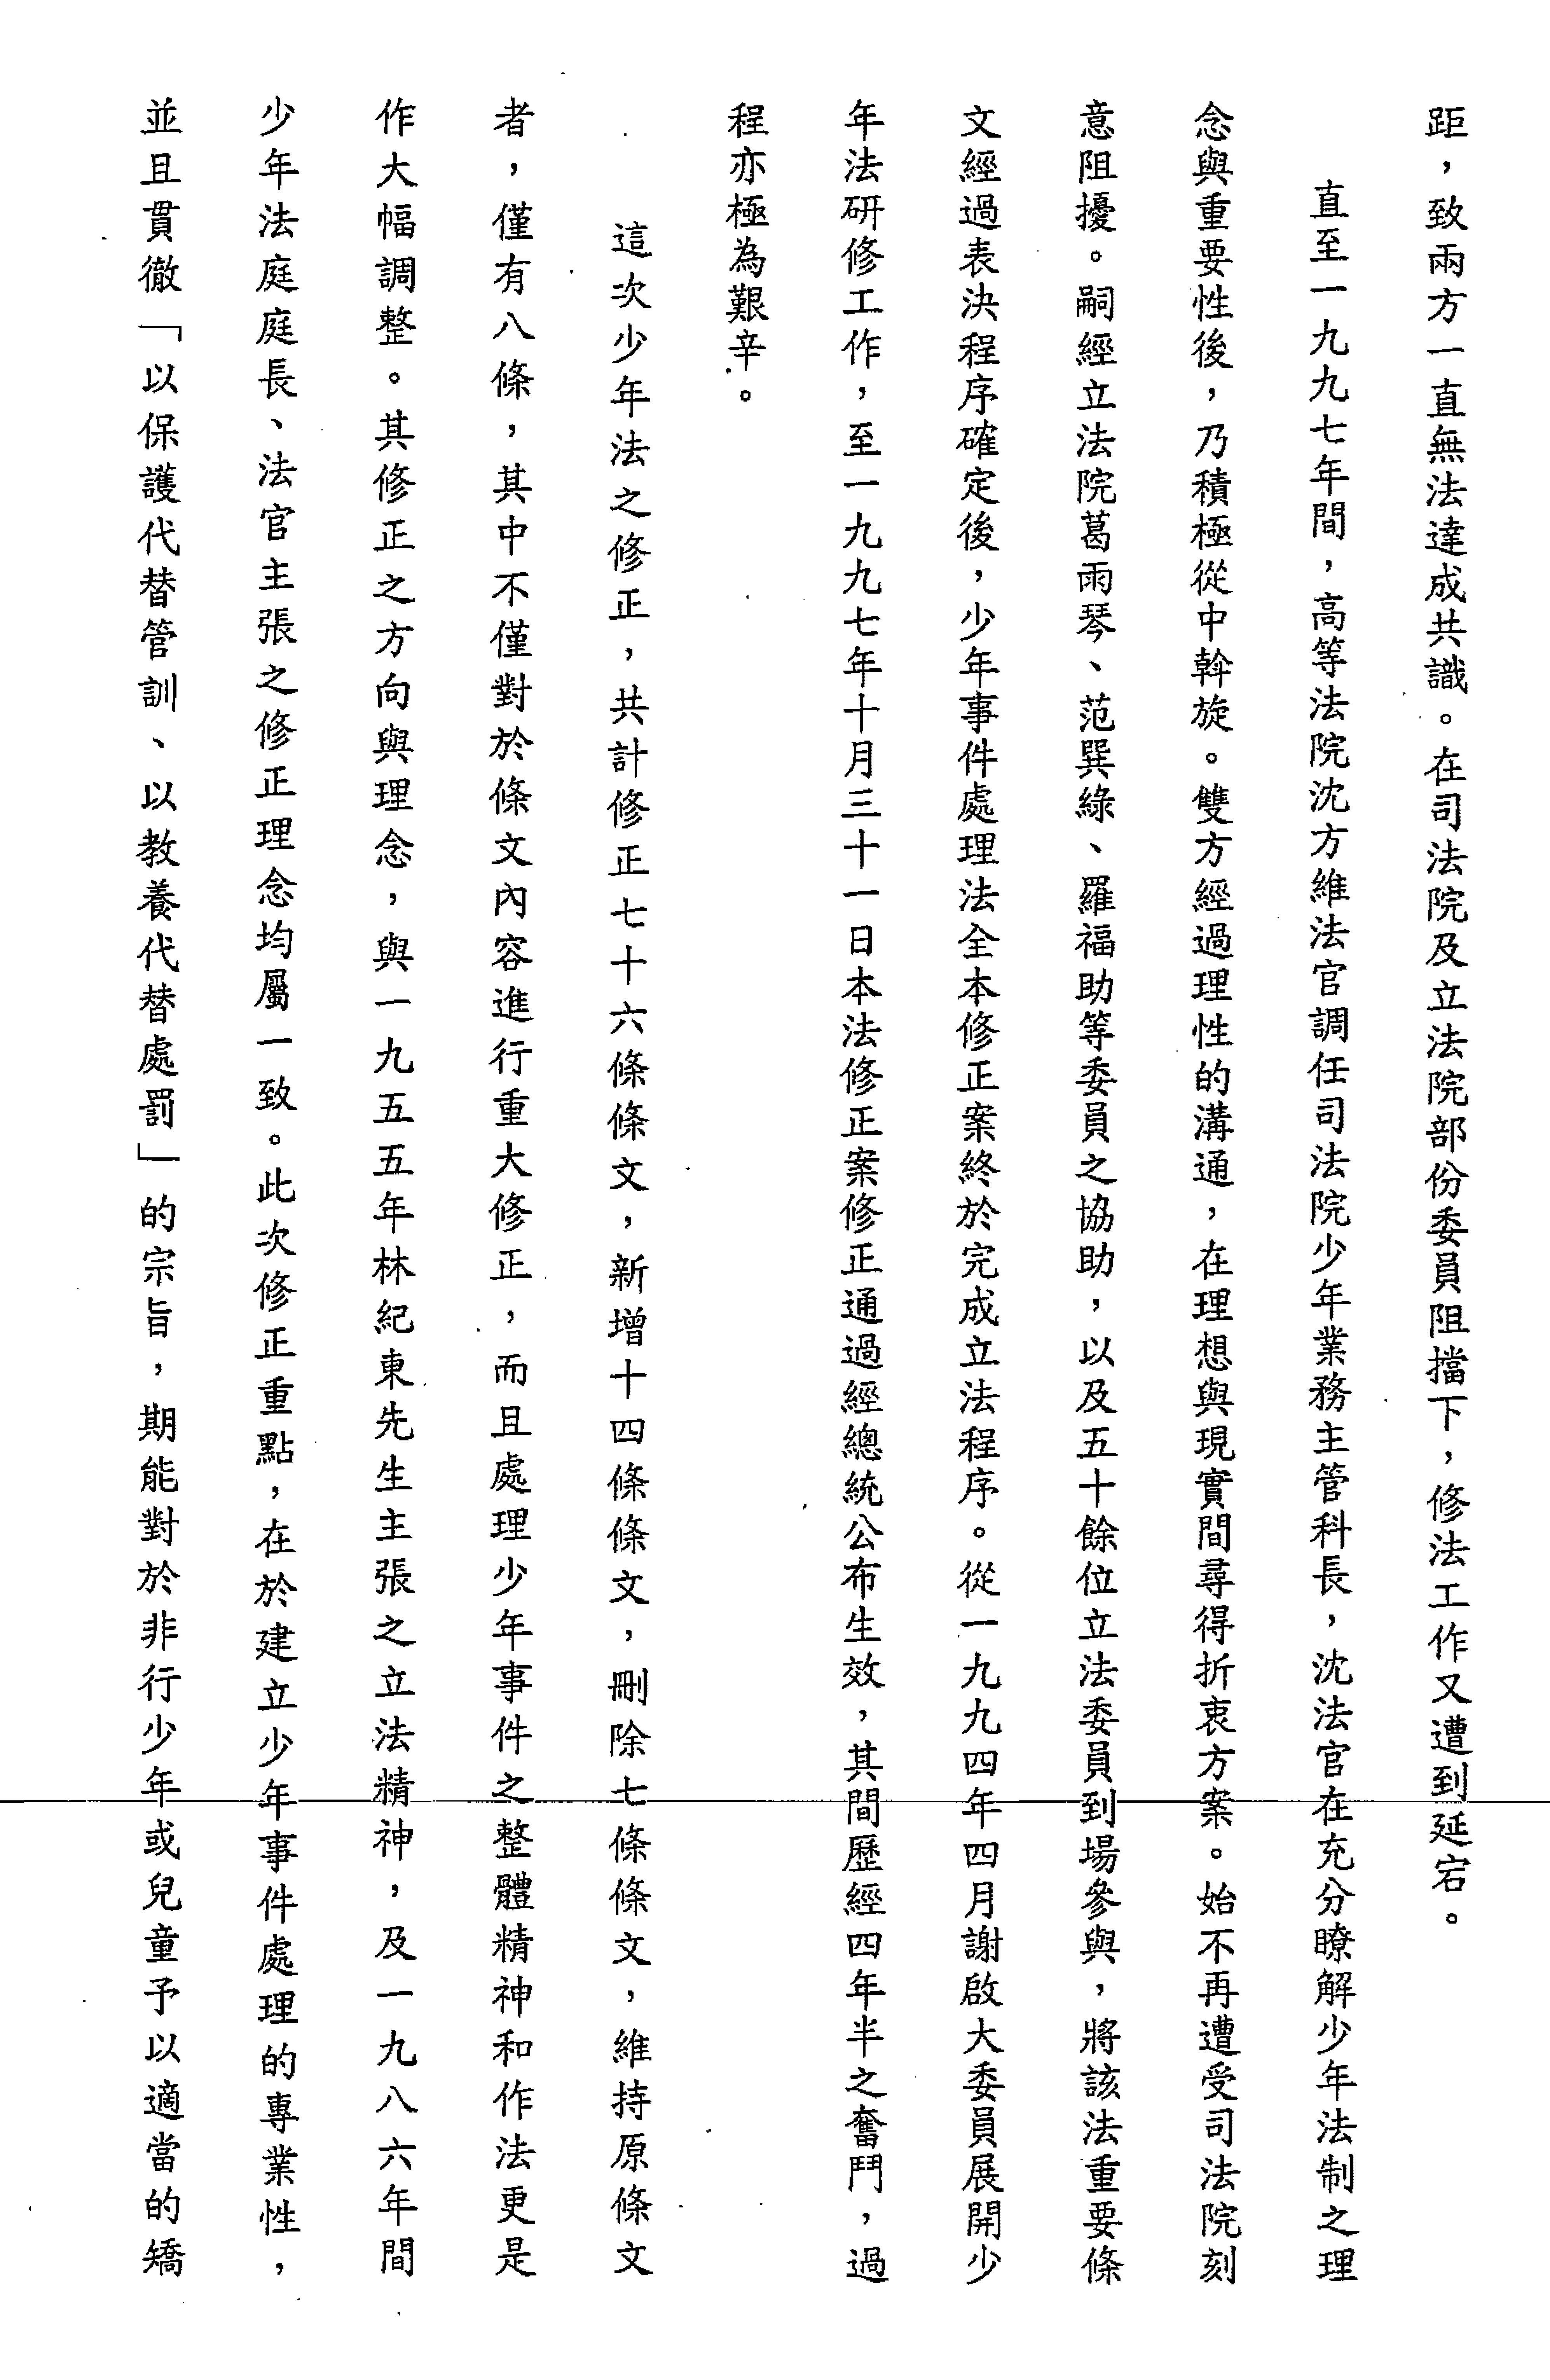 距，致兩方一直無法達成共識。在司法院及立法院部份委員阻擋下，修法工作又遭到延宕。
直至一九九七年間，高等法院沈方維法官調任司法院少年業務主管科長，沈法官在充分瞭解少年法制之理
念與重要性後，乃積極從中斡旋。雙方經過理性的溝通，在理想與現實間尋得折衷方案。始不再遭受司法院刻
意阻擾。嗣經立法院葛雨琴、范巽綠、羅福助等委員之協助，以及五十餘位立法委員到場參與，將該法重要條
文經過表決程序確定後，少年事件處理法全本修正案終於完成立法程序。從一九九四年四月謝啟大委員展開少
年法研修工作，至一九九七年十月三十一日本法修正案修正通過經總統公布生效，其間歷經四年半之奮鬥，過
程亦極為艱辛。
這次少年法之修正，共計修正七十六條條文，新增十四條條文，刪除七條條文，維持原條文
者，僅有八條，其中不僅對於條文內容進行重大修正，而且處理少年事件之整體精神和作法更是
作大幅調整。其修正之方向與理念，與一九五五年林紀東先生主張之立法精神，及一九八六年間
少年法庭庭長、法官主張之修正理念均屬一致。此次修正重點，在於建立少年事件處理的專業性，
並且貫徹「以保護代替管訓、以教養代替處罰」的宗旨，期能對於非行少年或兒童予以適當的矯